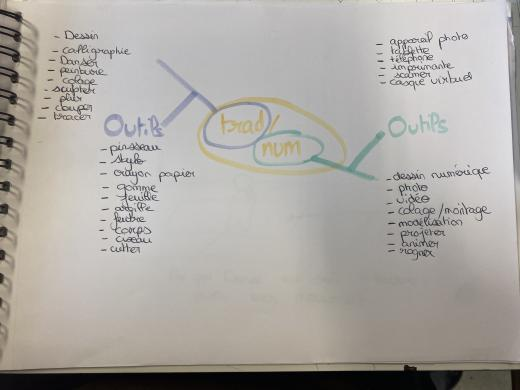 - Dessin
- calligraphie
- Danser
- peinture
- colage
- sculpter
- plier
- couper
- tracer
Outils
- pinsseau
- stylo
- crayon papier
- gomme
- feuille
- argille
- feutre
- corps
- ciseau
- cutter
trad/
num
- appareil photo
- tablette
- téléphone
- imprimante
- scanner
- casque virtuel
Outils
- dessin numérique
- photo
- vidéo
- colage/montage
- modélisation
- projeter
- animer
- rogner